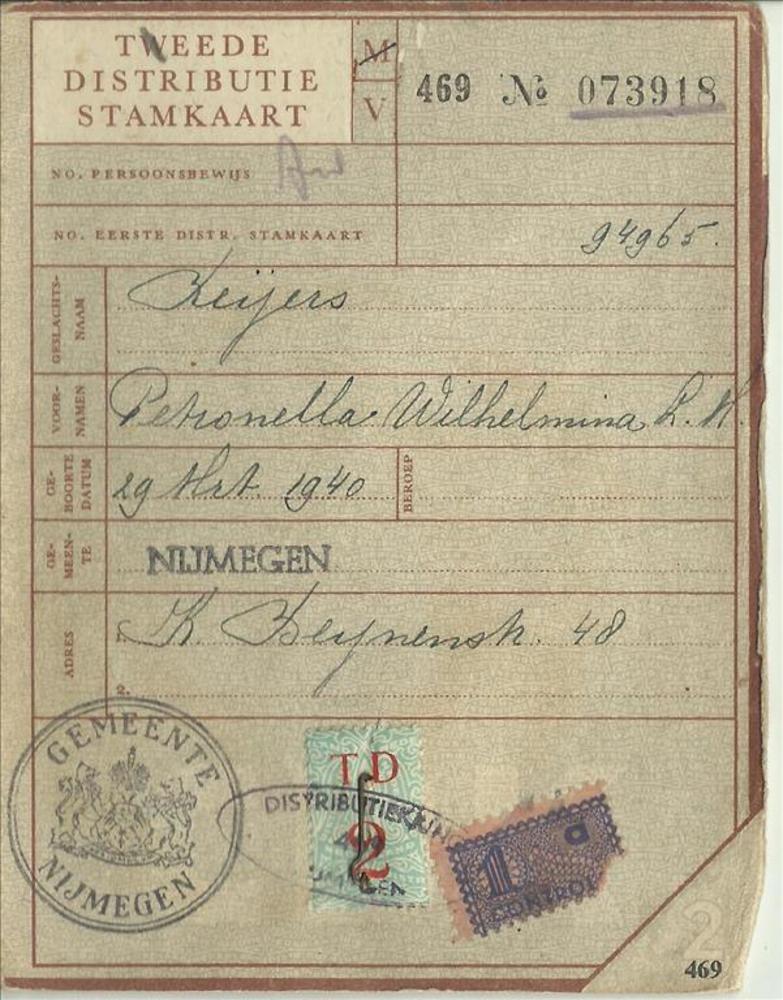 TWEEDE
DISTRIBUTIE
STAMKAART
M
V
469 No 073918
NO. PERSOONSBEWIJS
NO. EERSTE DISTR. STAMKAART
94965.
GESLACHTS-
NAAM
Keijers
VOOR-
NAMEN
Petronella Wilhelmina
GE-
BOORTE
DATUM
29 Mrt. 1940
BEROEP
GE-
MEEN-
TE
NIJMEGEN
ADRES
1.
48
2.
GEMEENTE
NIJMEGEN
TD
2
DISTRIBUTIEKRING
1 a
CONTROL
2
469